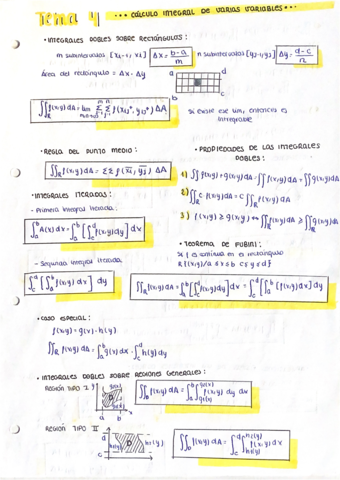 Tema 4 ••• CÁLCULO INTEGRAL DE VARIAS VARIABLES •••
• INTEGRALES DOBLES SOBRE RECTÁNGULOS:
m subintervalos [xi-1, xi] Δx = b-a/m n subintervalos [yj-1, yj] Δy = d-c/n
Área del rectángulo = Δx · Δy
a d
b c
∬R f(x,y) dA = lim m,n→∞ Σ Σ f(xij*, yij*) ΔA
Si existe ese lim, entonces es integrable
• REGLA DEL PUNTO MEDIO:
∬R f(x,y) dA = ΣΣ f(x̄i, ȳj) ΔA
• PROPIEDADES DE LAS INTEGRALES DOBLES:
1) ∬ f(x,y) + g(x,y) dA = ∬ f(x,y) dA + ∬ g(x,y) dA
2) ∬R c f(x,y) dA = c ∬R f(x,y) dA
3) f(x,y) ≥ g(x,y) ↔ ∬R f(x,y) dA ≥ ∬R g(x,y) dA
• INTEGRALES ITERADAS:
- Primera integral iterada:
∫a^b A(x) dx = ∫a^b [∫c^d f(x,y) dy] dx
- Segunda integral iterada:
∫c^d [∫a^b f(x,y) dx] dy
• TEOREMA DE FUBINI:
Si f es continua en el rectángulo
R{(x,y)/a ≤ x ≤ b c ≤ y ≤ d}
∬R f(x,y) dA = ∫a^b [∫c^d f(x,y) dy] dx = ∫c^d [∫a^b f(x,y) dx] dy
• CASO ESPECIAL:
f(x,y) = g(x) · h(y)
∬R f(x,y) dA = ∫a^b g(x) dx · ∫c^d h(y) dy
• INTEGRALES DOBLES SOBRE REGIONES GENERALES:
REGIÓN TIPO I
a b x
∬D f(x,y) dA = ∫a^b ∫ f(x,y) dy dx
REGIÓN TIPO II
d
c
∬D f(x,y) dA = ∫c^d ∫ f(x,y) dx